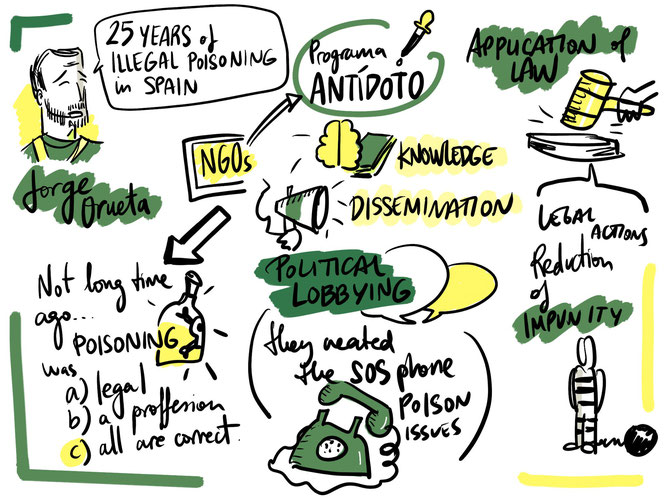 25 YEARS of
ILLEGAL POISONING
in SPAIN
Jorge Orueta
NGOs
Programa
ANTÍDOTO
KNOWLEDGE
DISSEMINATION
POLITICAL
LOBBYING
they created
the SOS phone
POISON
ISSUES
Not long time
ago...
POISONING
was
a) legal
b) a proffesion
c) all are correct.
APPLICATION of
LAW
LEGAL
ACTIONS
Reduction
of
IMPUNITY